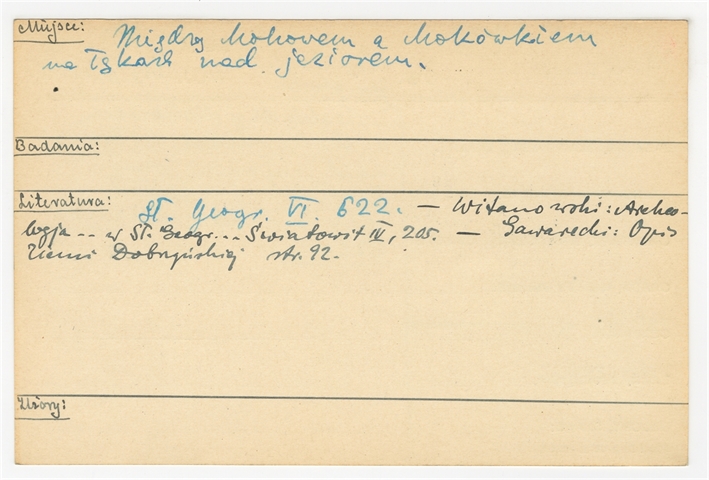 Miejsce: Między Mohowem a Mokówkiem
na łąkach nad jeziorem.
Badania:
Literatura: Sł. Geogr. VI. 622. — Witanowski: Archeo-
logja -- w Sł. Geogr... Światowit IV, 205. — Gawarecki: Opis
Ziemi Dobrzyńskiej str. 92.
Zbiory: